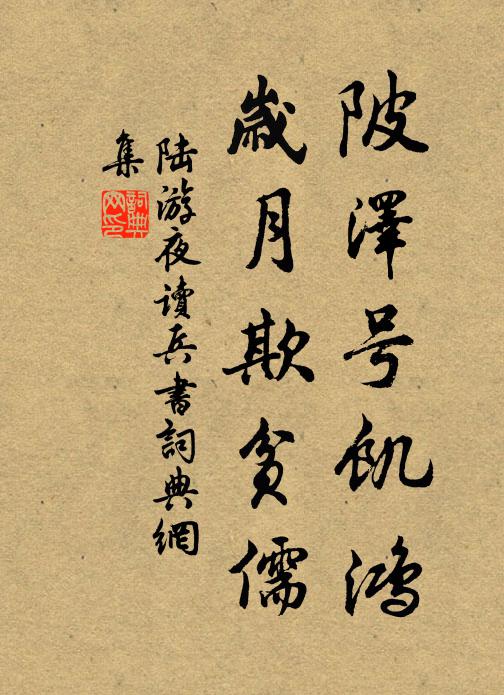 陂澤号飢鴻
歲月欺貧儒
陆游夜讀兵書詞典網
集
詞典
网印